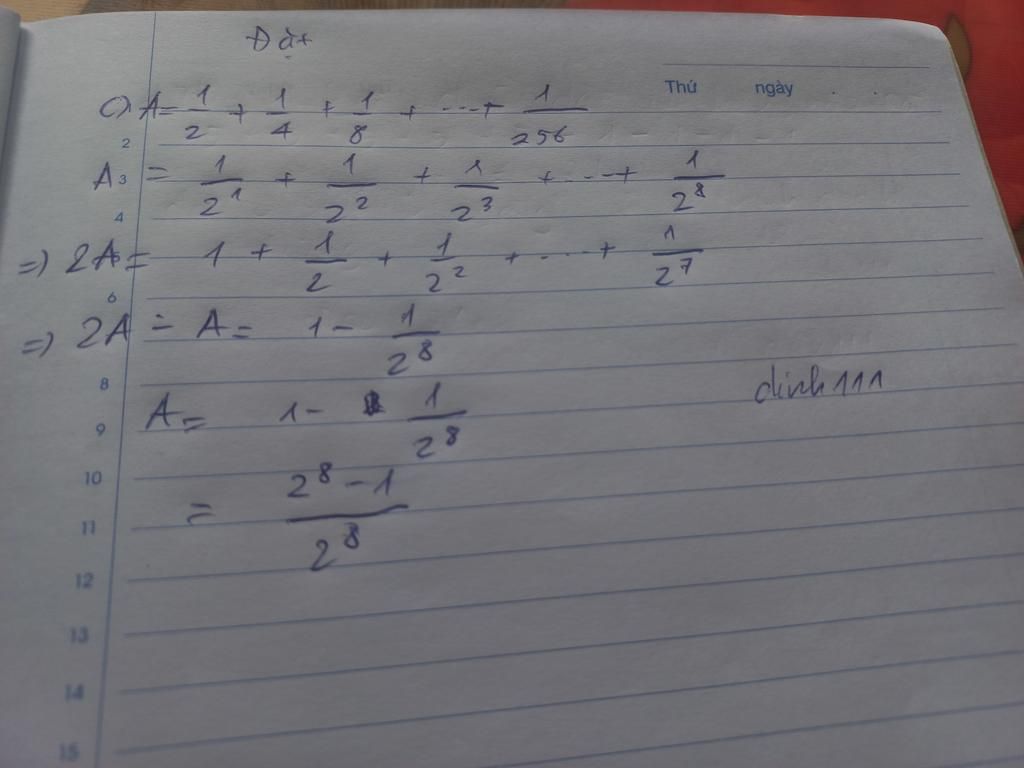 Đặt
Thứ ngày
c) A = 1/2 + 1/4 + 1/8 + ... + 1/256
2
3
A = 1/2^1 + 1/2^2 + 1/2^3 + ... + 1/2^8
4
=) 2A = 1 + 1/2 + 1/2^2 + ... + 1/2^7
6
=) 2A - A = 1 - 1/2^8
8
dinh111
A = 1 - 1/2^8
9
10
= (2^8 - 1)/2^8
11
12
13
14
15